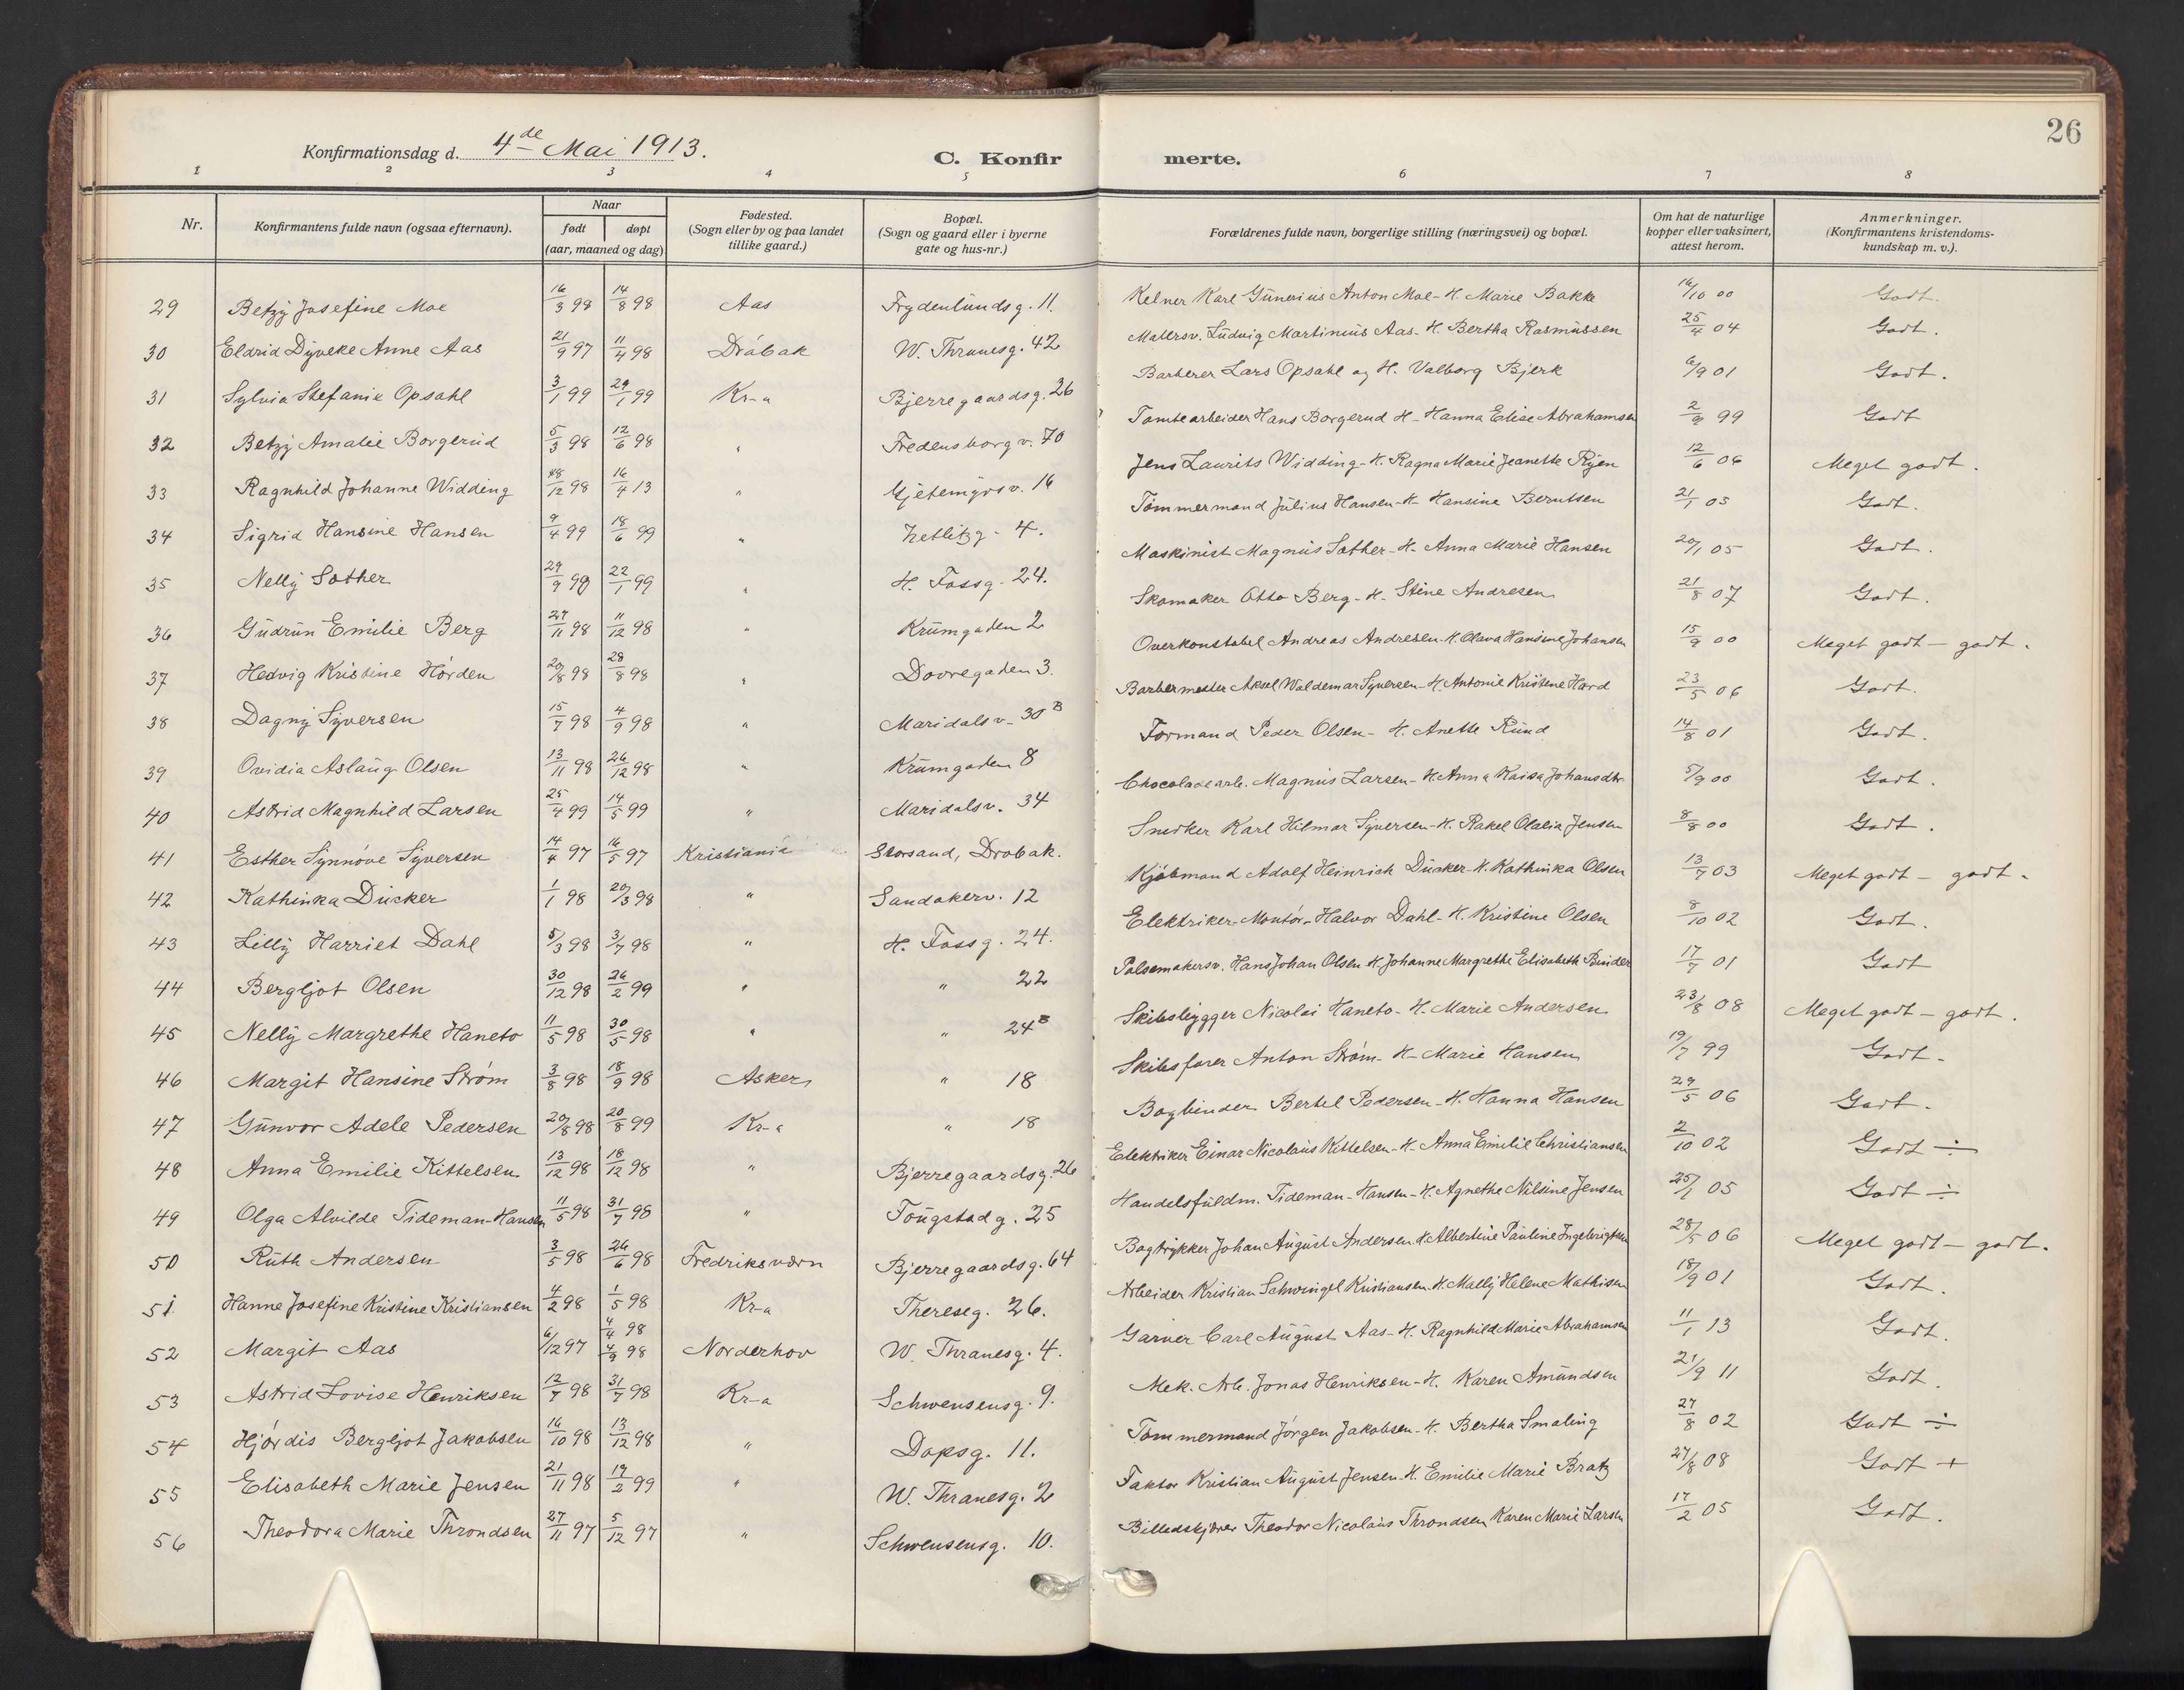 Konfirmationsdag d. 4de Mai 1913.
C. Konfirmerte.
26
1 2 3 4 5 6 7 8
Nr. | Konfirmantens fulde navn (ogsaa efternavn). | Naar født | døpt (aar, maaned og dag) | Fødested. (Sogn eller by og paa landet tillike gaard.) | Bopæl. (Sogn og gaard eller i byerne gate og hus-nr.) | Forældrenes fulde navn, borgerlige stilling (næringsvei) og bopæl. | Om hat de naturlige kopper eller vaksinert, attest herom. | Anmerkninger. (Konfirmantens kristendomskundskap m. v.).
29 Betzy Josefine Moe 16/3 98 14/8 98 Aas Frydenlundsg. 11. Kelner Karl Gunerius Anton Moe - H. Marie Bakke 16/10 00 Godt.
30 Eldrid Dyveke Anne Aas 21/9 97 11/4 98 Drøbak W. Thranesg. 42 Malersv. Ludvig Martinius Aas - H. Bertha Rasmussen 25/4 04 Godt.
31 Sylvia Stefanie Opsahl 3/1 99 29/1 99 Kr-a Bjerregaardsg. 26 Barberer Lars Opsahl og H. Valborg Bjerk 6/9 01 Godt.
32 Betzy Amalie Borgerud 5/3 98 12/6 98 " Fredensborgv. 70 Tomtearbeider Hans Borgerud H - Hanna Elise Abrahamsen 2/9 99 Godt
33 Ragnhild Johanne Widding 12 98 16/4 13 " Gjetemyrsv. 16 Jens Laurits Widding - H. Ragna Marie Jeanette Ryen 12/6 06 Meget godt.
34 Sigrid Hansine Hansen 9/4 99 18/6 99 " Zetlitzg - 4. Tømmermand Julius Hansen - H - Hansine Berntsen 21/1 05 Godt.
35 Nelly Sæther 29/9 98 22/1 99 " H. Fossg - 24. Maskinist Magnus Sæther - H. Anna Marie Hansen 20/1 05 Godt.
36 Gudrun Emilie Berg 27/11 98 11/12 98 " Krumgaden 2 Skomaker Otto Berg - H. Stine Andresen 21/8 07 Godt.
37 Hedvig Kristine Hørden 20/8 98 28/8 98 " Dovregaden 3. Overkonstabel Andreas Andresen - H. Olava Hansine Johansen 15/9 00 Meget godt - godt.
38 Dagny Syversen 15/7 98 4/9 98 " Maridalsv - 30 B Barbermester Aksel Waldemar Syversen - H. Antonie Kristine Hard 23/5 06 Godt.
39 Ovidia Aslaug Olsen 13/11 98 26/12 98 " Krumgaden 8 Formand Peder Olsen - H. Anette Rund 14/8 01 Godt.
40 Astrid Magnhild Larsen 25/4 99 14/5 99 " Maridalsv. 34 Chocoladearb. Magnus Larsen - H Anna Kaisa Johansdtr. 5/9 00 Godt.
41 Esther Synnøve Syversen 14/4 97 16/5 97 Kristiania Storsand, Drøbak. Snedker Karl Hilmar Syversen - H. Rakel Olalia Jensen 8/8 00 Godt.
42 Kathinka Dücker 1/1 98 20/3 98 " Sandakerv. 12 Kjøbmand Adolf Heinrich Dücker - H. Kathinka Olsen 13/7 03 Meget godt - godt.
43 Lilly Harriet Dahl 5/3 98 3/7 98 " H. Fossg. 24. Elektriker-Montør - Halvor Dahl - H. Kristine Olsen 8/10 02 Godt.
44 Bergljot Olsen 30/12 98 26/2 99 " " 22 Pølsemakersv. Hans Johan Olsen H. Johanne Margrethe Elisabeth Binider 17/7 01 Godt
45 Nelly Margrethe Haneto 11/5 98 30/5 98 " " 24 B Skibsbygger Nicolai Haneto - H. Marie Andersen 23/8 08 Meget godt - godt.
46 Margit Hansine Strøm 3/8 98 18/9 98 Asker " 18 Skibsfører Anton Strøm - H - Marie Hansen 19/7 99 Godt -
47 Gunvor Adele Pedersen 20/8 98 20/8 99 Kr-a " 18 Bogbinder Bertel Pedersen - H. Hanna Hansen 29/5 06 Godt.
48 Anna Emilie Kittelsen 13/12 98 18/12 98 " Bjerregaardsg. 26 Elektriker Einar Nicolaus Kittelsen - H - Anna Emilie Christiansen 2/10 02 Godt ÷
49 Olga Alvilde Tideman-Hansen 11/5 98 31/7 98 " Tougstadg. 25 Handelsfuldm. Tideman-Hansen - H. Agnethe Nilsine Jensen 25/1 05 Godt ÷
50 Ruth Andersen 3/5 98 26/6 98 Fredriksværn Bjerregaardsg. 64 Bogtrykker Johan August Andersen H Albertine Pauline Ingebrigtsen 28/5 06 Meget godt - godt.
51 Hanne Josefine Kristine Kristiansen 4/2 98 1/5 98 Kr-a Thereseg. 26. Arbeider Kristian Schwingel Kristiansen. H. Mally Helene Mathisen 18/9 01 Godt.
52 Margit Aas 6/12 97 4/4 98 4/9 98 Norderhov W. Thranesg. 4. Garver Carl August Aas - H. Ragnhild Marie Abrahamsen 11/1 13 Godt.
53 Astrid Lovise Henriksen 12/7 98 31/7 98 Kr-a Schwensensg. 9. Mek. Arb. Jonas Henriksen - H. Karen Amundsen 21/9 11 Godt.
54 Hjørdis Bergljot Jakobsen 16/10 98 13/12 98 " Dopsg. 11. Tømmermand Jørgen Jakobsen - H. Bertha Smaling 27/8 02 Godt ÷
55 Elisabeth Marie Jensen 21/11 98 19/2 99 " W. Thranesg. 2 Faktor Kristian August Jensen - H. Emilie Marie Bratz 27/8 08 Godt +
56 Theodora Marie Throndsen 27/11 97 5/12 97 " Schwensensg. 10. Billedskjærer Theodor Nicolaus Throndsen Karen Marie Larsen 17/2 05 Godt.